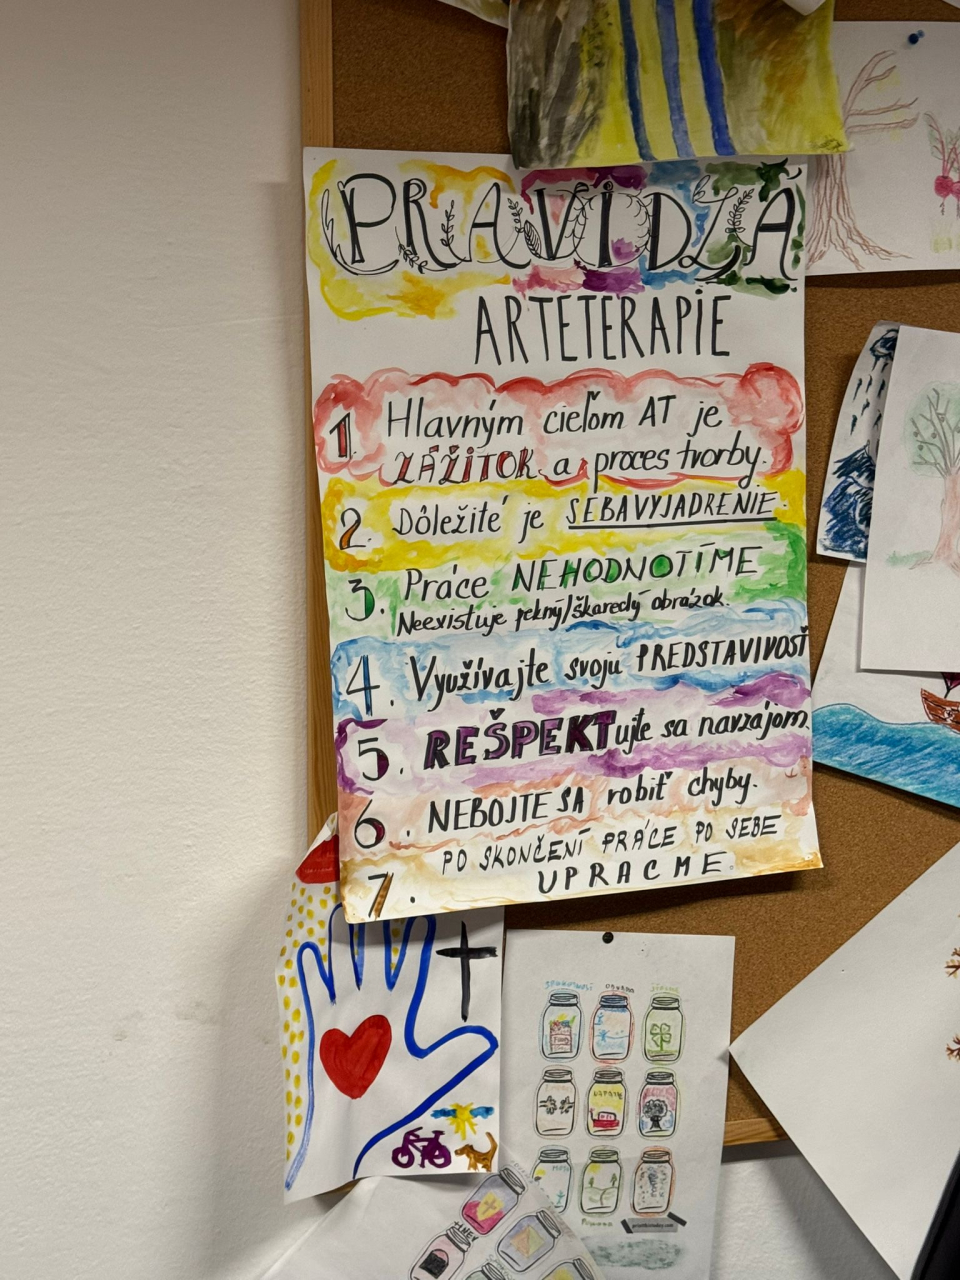 PRAVIDLÁ
ARTETERAPIE
1. Hlavným cieľom AT je
ZÁŽITOK a proces tvorby.
2. Dôležité je SEBAVYJADRENIE.
3. Práce NEHODNOTÍME
Neexistuje pekný/škaredý obrázok.
4. Využívajte svoju PREDSTAVIVOSŤ
5. REŠPEKTujte sa navzájom.
6. NEBOJTE SA robiť chyby.
7. PO SKONČENÍ PRÁCE PO SEBE
UPRACME.